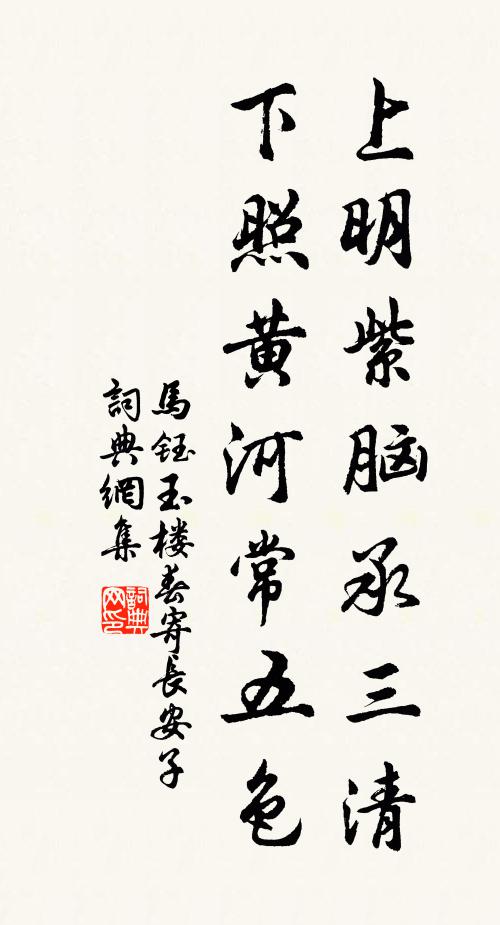 上明紫脑承三清
下照黄河常五色
馬鈺玉楼春寄長安子
詞典網集
詞典
网印